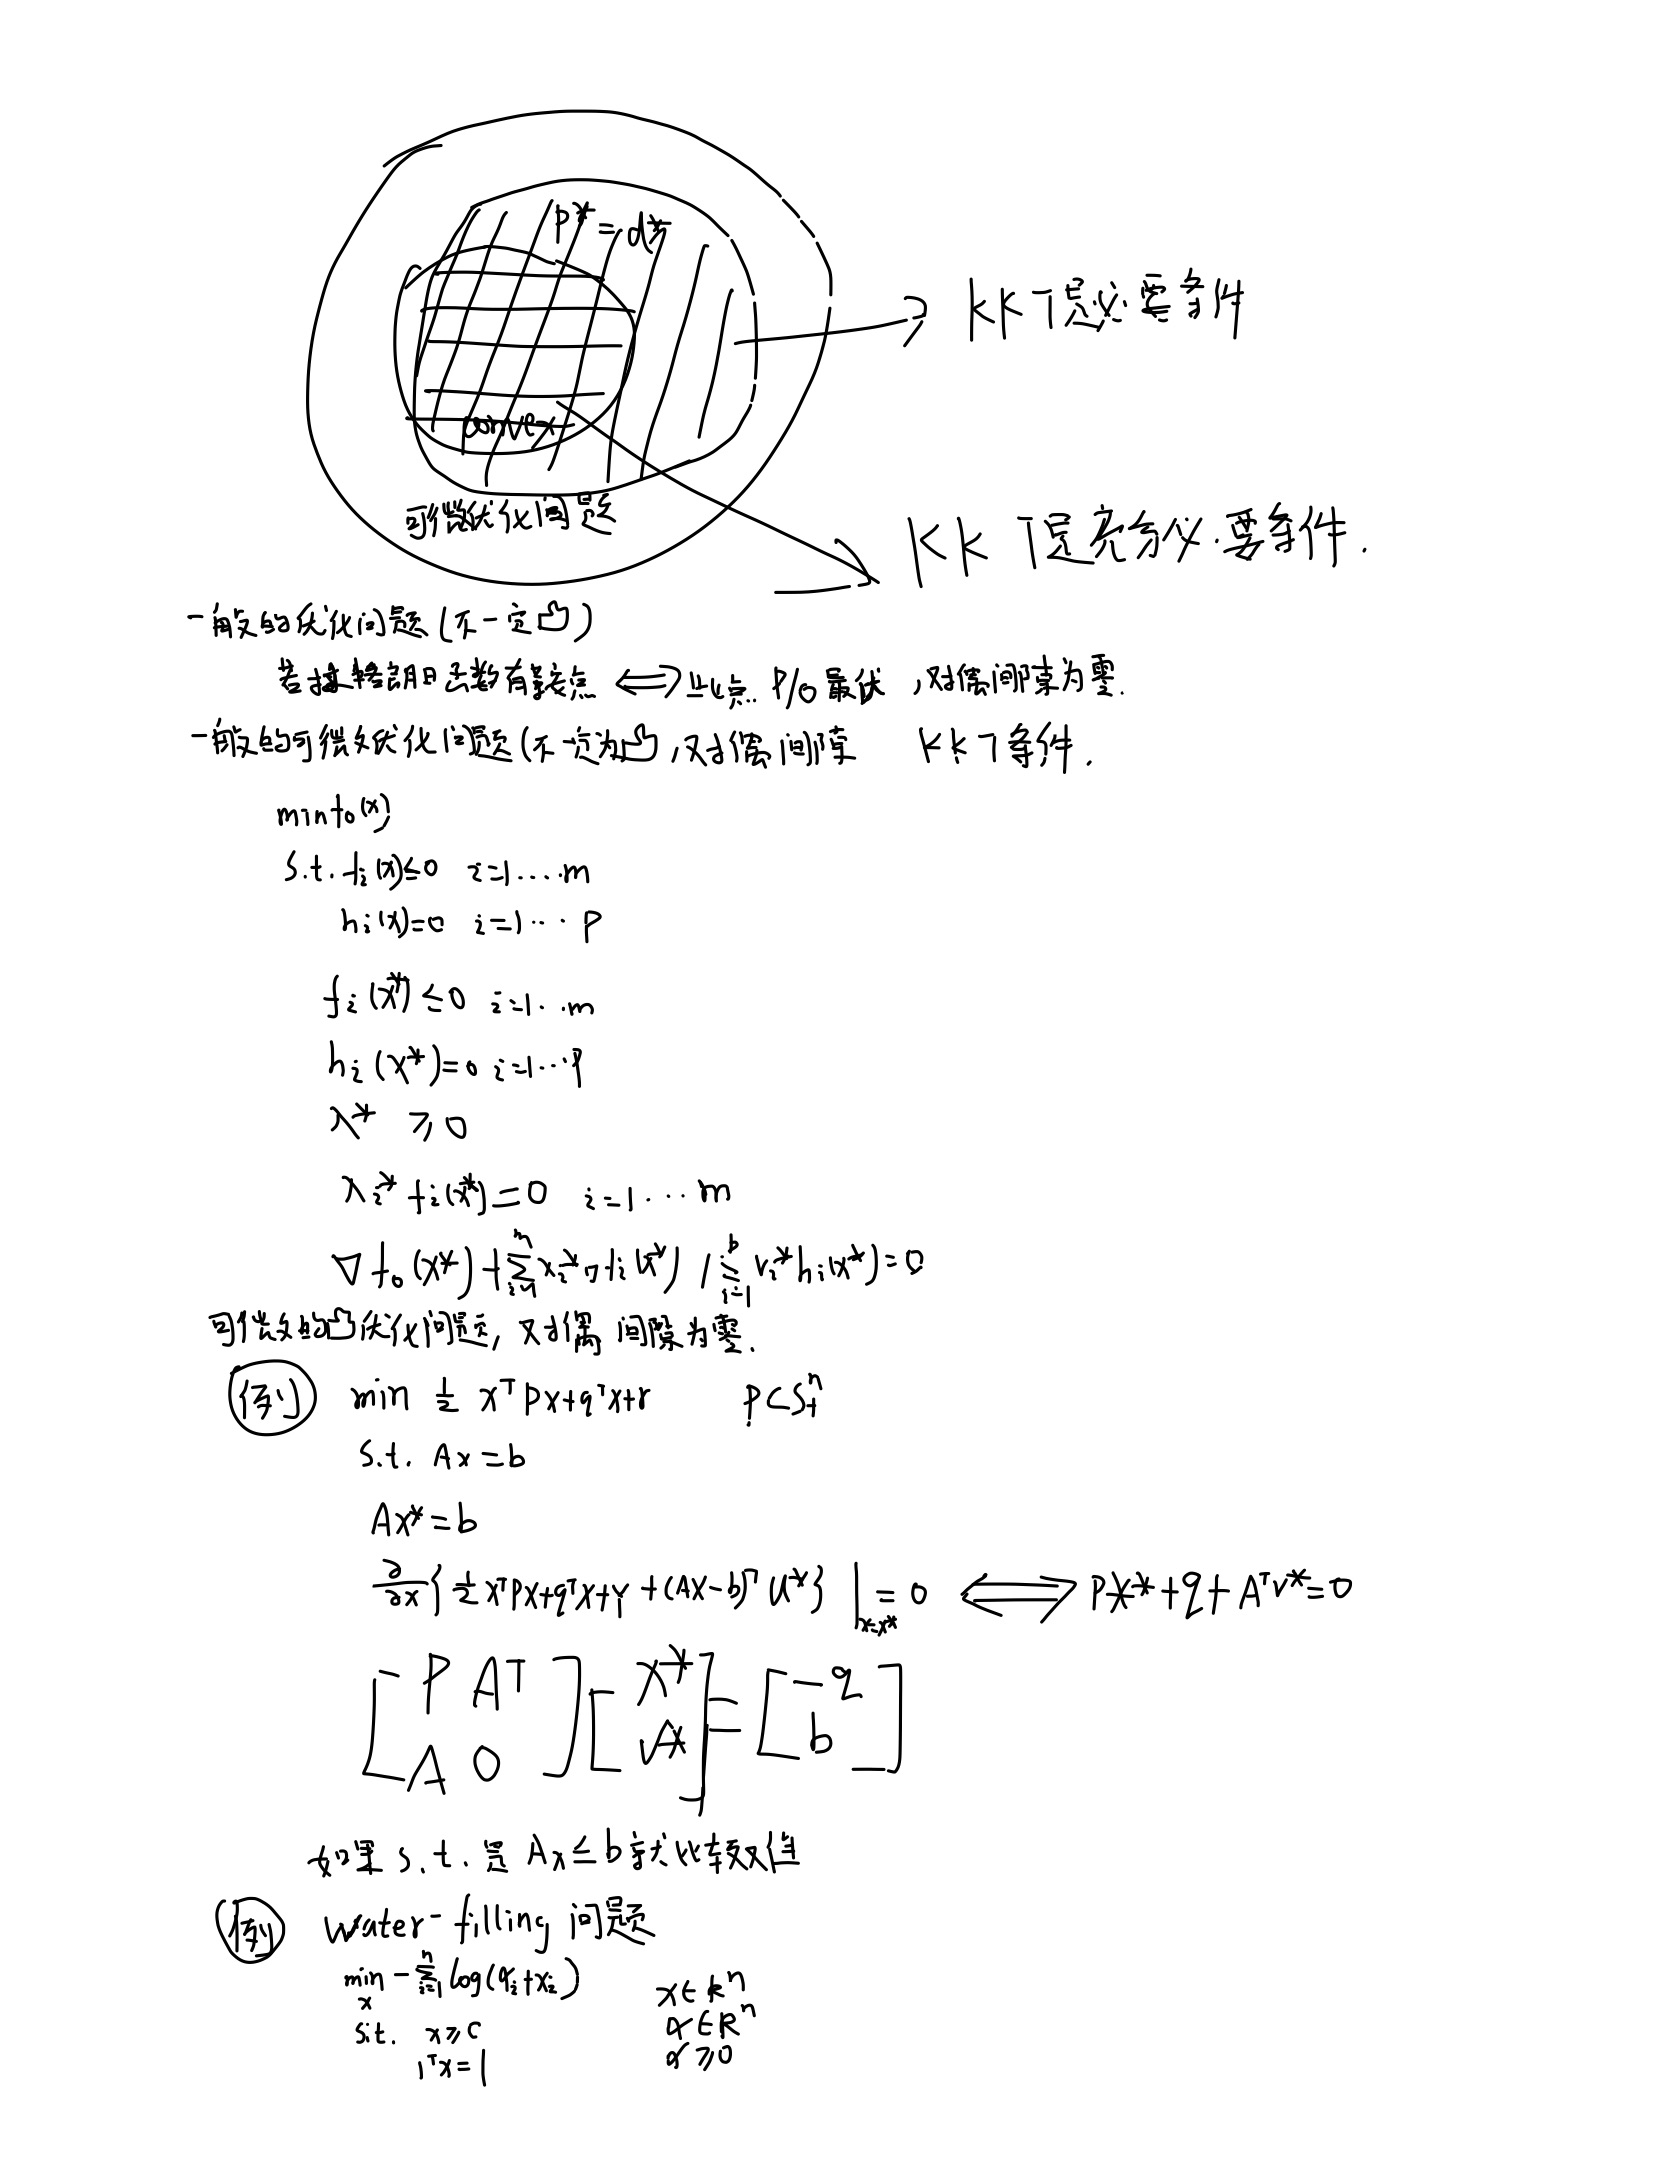 p* = d*
KKT是必要条件
convex
可微优化问题
KKT是充分必要条件.
一般的优化问题(不一定凸)
若拉格朗日函数有鞍点 ⟺ 此点 P/D 最优,对偶间隙为零.
一般的可微优化问题(不一定为凸,对偶间隙 KKT条件.
min f₀(x)
s.t. fᵢ(x)≤0 i=1....m
hᵢ(x)=0 i=1... p
fᵢ(x*)≤0 i=1...m
hᵢ(x*)=0 i=1...p
λ* ≥0
λᵢ* fᵢ(x*)=0 i=1....m
∇f₀(x*)+∑ᵢ₌₁ᵐ λᵢ*∇fᵢ(x*) + ∑ᵢ₌₁ᵖ vᵢ*hᵢ(x*)=0
可微的凸优化问题,对偶间隙为零.
例 min ½ xᵀPx+qᵀx+r P∈S₊ⁿ
s.t. Ax=b
Ax*=b
∂/∂x{½xᵀPx+qᵀx+r+(Ax-b)ᵀv*}|ₓ₌ₓ* =0 ⟺ Px*+q+Aᵀv*=0
[P Aᵀ][x*]=[-q]
[A 0][v*] [b]
如果 s.t. 是 Ax≤b 就比较
例 water-filling 问题
min x -∑ᵢ₌₁ⁿ log(αᵢ+xᵢ) x∈Rⁿ
s.t. x≥0 α∈Rⁿ
1ᵀx=1 α≥0